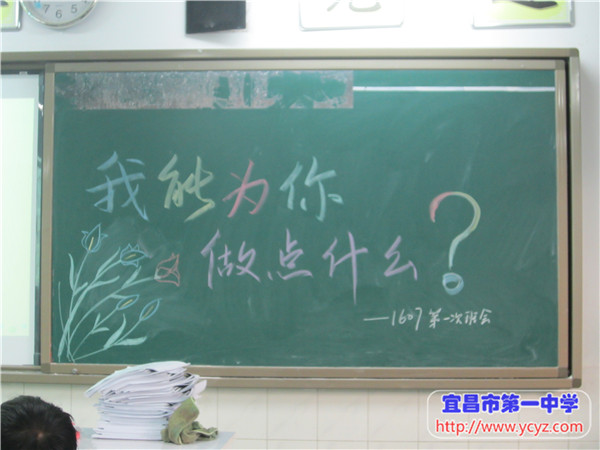 7 6 5
我能为你
做点什么?
——1607第一次班会
宜昌市第一中学
http://www.ycyz.com